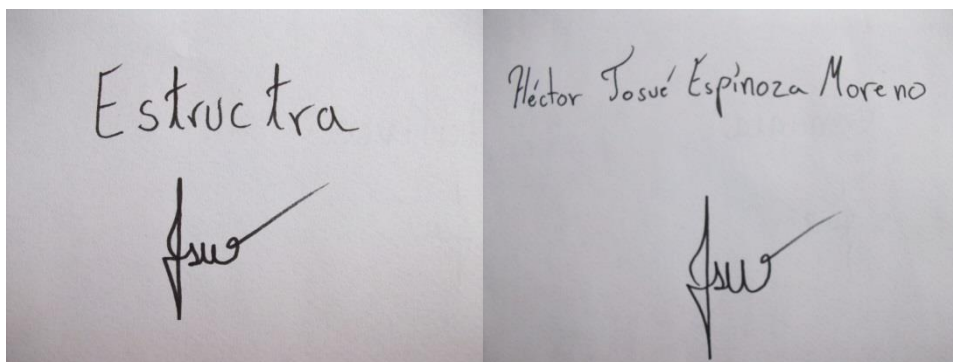 Estructra
Héctor Josué Espinoza Moreno